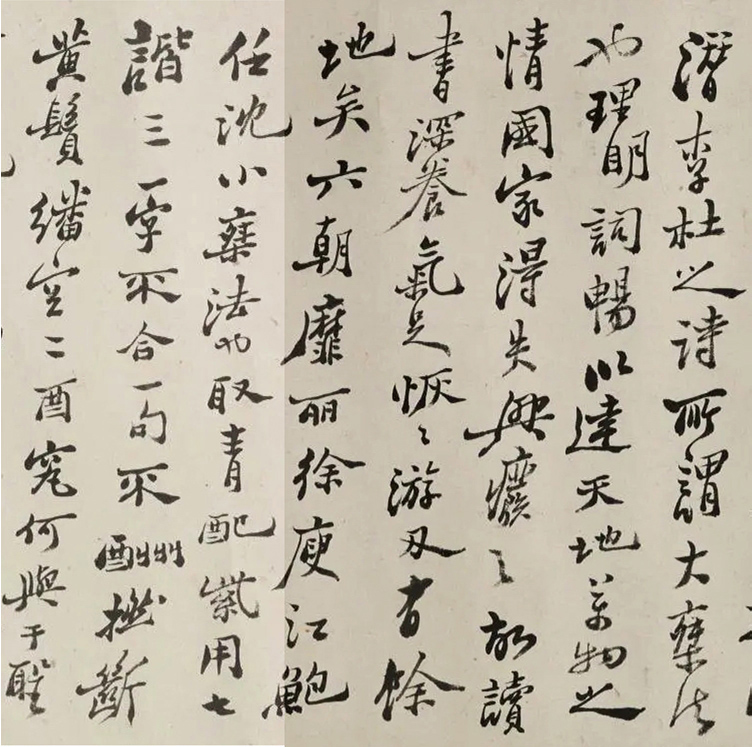 潛李杜之詩所謂大乘法
也理明詞暢以達天地萬物之
情國家得失興廢之故讀
書深養氣足恢〻游刃有餘
地矣六朝靡丽徐庾江鮑
任沈小乘法也取青配紫用七
諧三一字不合一句不酬撚斷
黃鬚繙空二酉究何與于聖